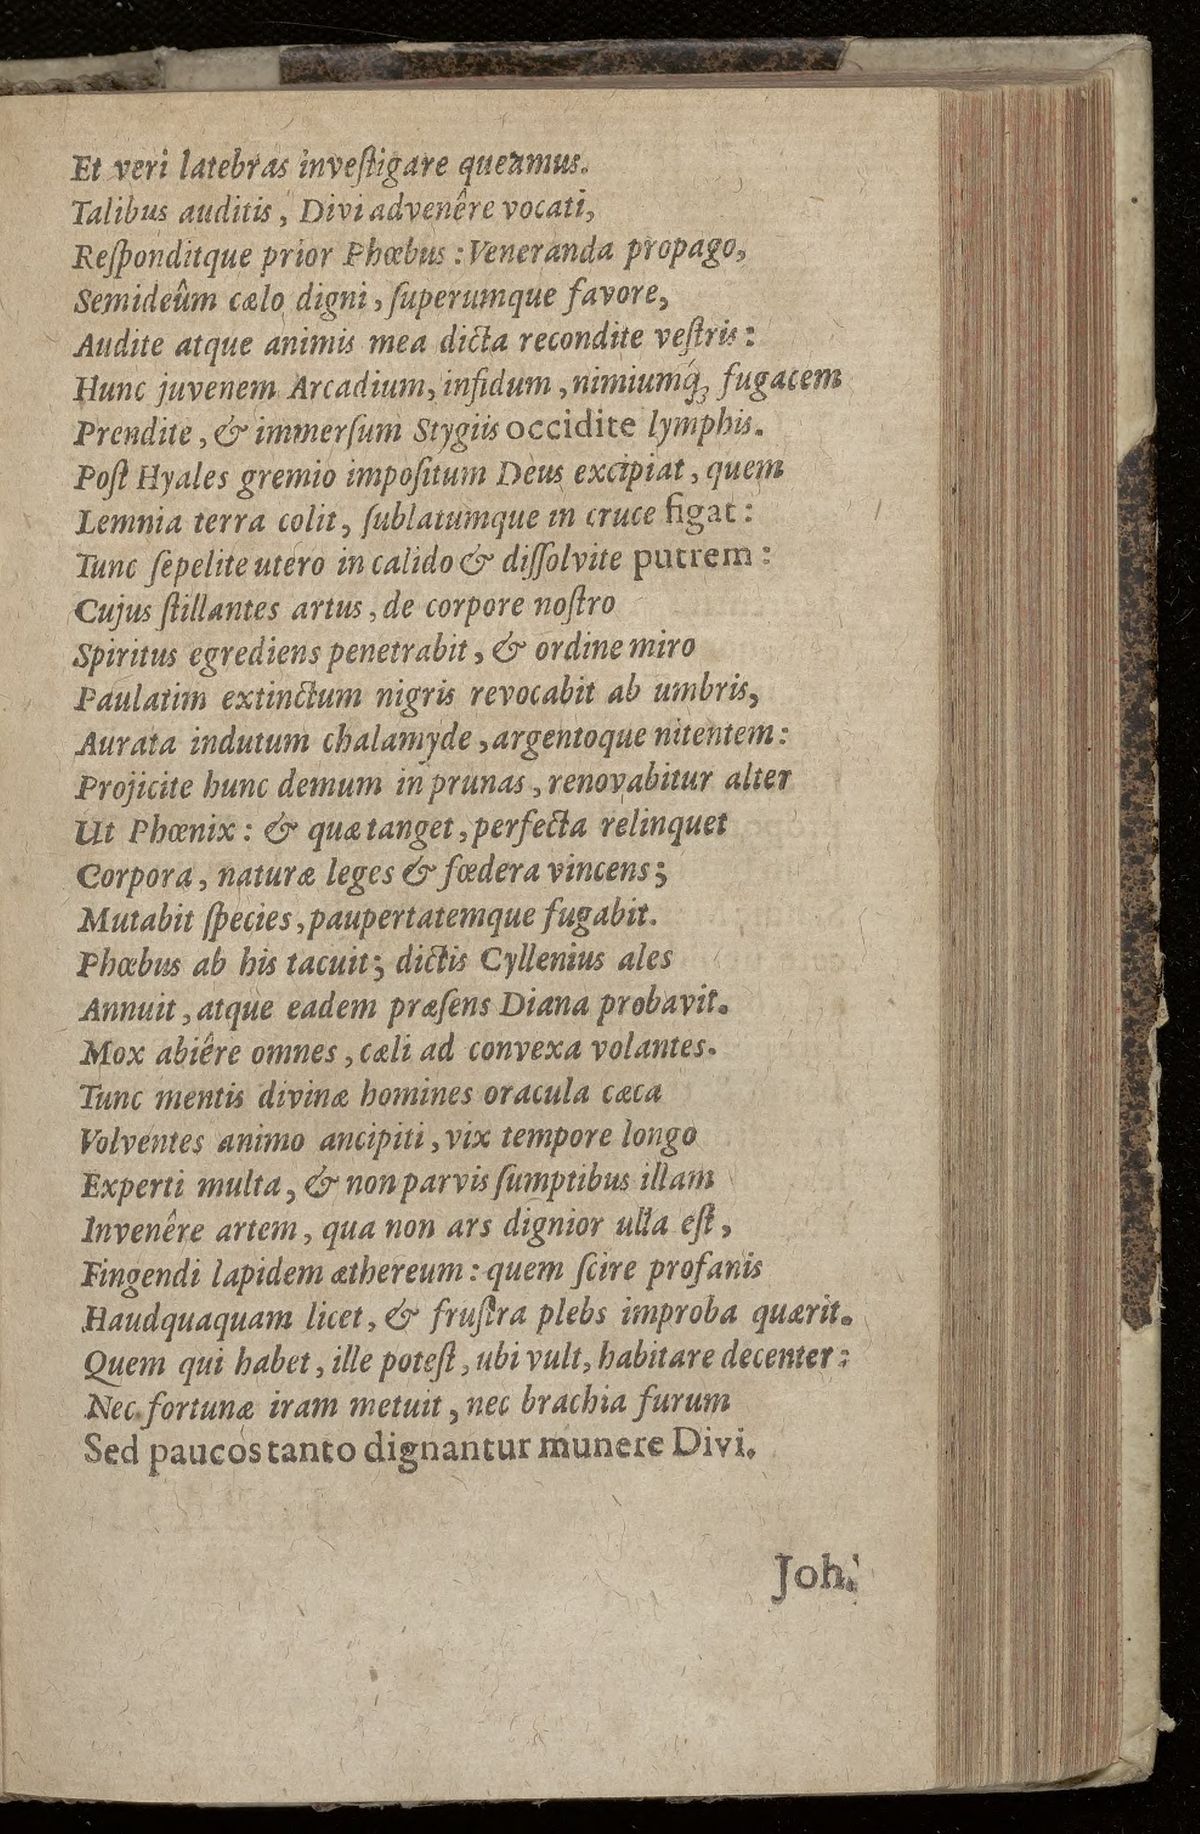 Et veri latebras inveſtigare queamus.
Talibus auditis, Divi advenêre vocati,
Reſponditque prior Phœbus: Veneranda propago,
Semideûm cælo digni, ſuperumque favore,
Audite atque animis mea dicta recondite veſtris:
Hunc juvenem Arcadium, infidum, nimiumq́; fugacem
Prendite, & immerſum Stygiis occidite lymphis.
Poſt Hyales gremio impoſitum Deus excipiat, quem
Lemnia terra colit, ſublatumque in cruce figat:
Tunc ſepelite utero in calido & diſſolvite putrem:
Cujus ſtillantes artus, de corpore noſtro
Spiritus egrediens penetrabit, & ordine miro
Paulatim extinctum nigris revocabit ab umbris,
Aurata indutum chalamyde, argentoque nitentem:
Projicite hunc demum in prunas, renovabitur alter
Ut Phœnix: & quæ tanget, perfecta relinquet
Corpora, naturæ leges & fœdera vincens;
Mutabit ſpecies, paupertatemque fugabit.
Phœbus ab his tacuit; dictis Cyllenius ales
Annuit, atque eadem præſens Diana probavit.
Mox abiêre omnes, cæli ad convexa volantes.
Tunc mentis divinæ homines oracula cæca
Volventes animo ancipiti, vix tempore longo
Experti multa, & non parvis ſumptibus illam
Invenêre artem, qua non ars dignior ulla eſt,
Fingendi lapidem æthereum: quem ſcire profanis
Haudquaquam licet, & fruſtra plebs improba quærit.
Quem qui habet, ille poteſt, ubi vult, habitare decenter:
Nec fortunæ iram metuit, nec brachia furum
Sed paucos tanto dignantur munere Divi.
Joh.